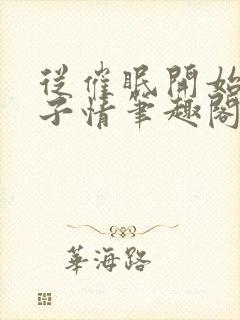 從催眠開始
子情筆趣閣
華海路